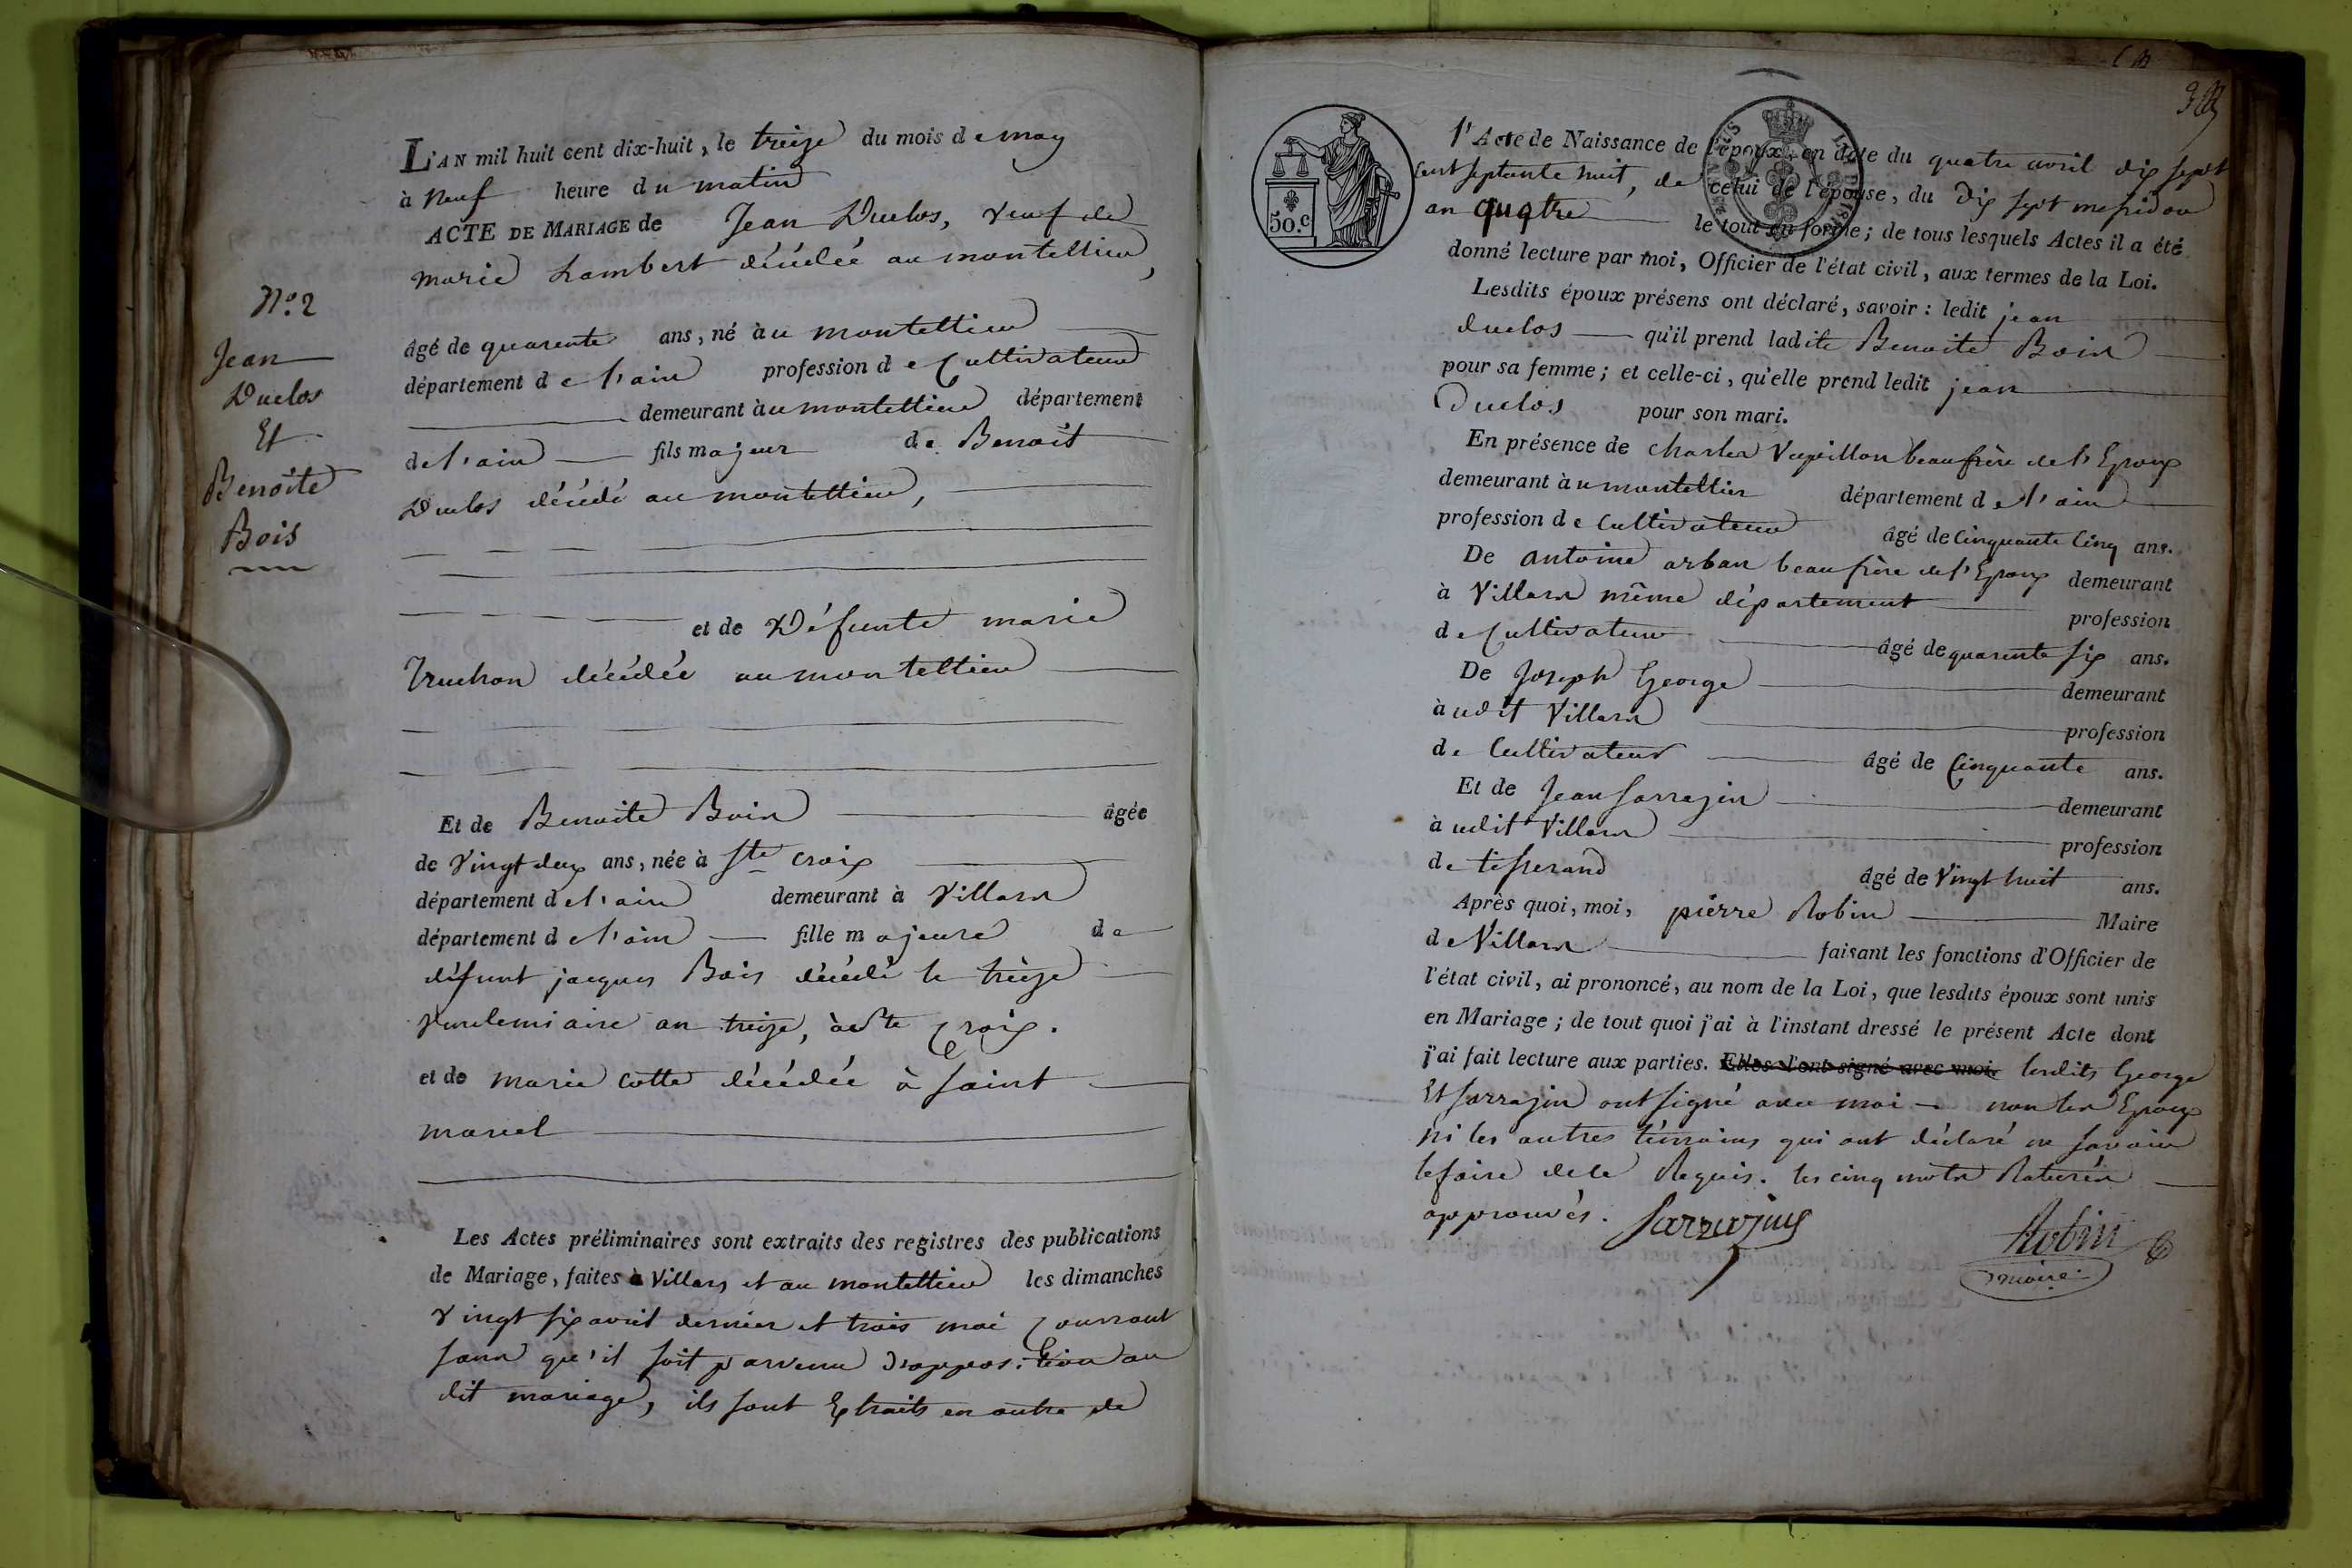 L'AN mil huit cent dix-huit, le treize du mois de may
à neuf heure du matin
ACTE DE MARIAGE de Jean Duclos, veuf de
marie Lambert décédée au montellier,
N.o 2
Jean
Duclos
Et
Benoite
Bois
âgé de quarente ans, né àu montellier
département de l'ain profession de Cultivateur
demeurant àu montellier département
de l'ain fils majeur de Benoit
Duclos décédé au montellier,
et de Défunte marie
Truchon décédée au montellier
Et de Benoite Bois âgée
de vingt deux ans, née à Ste croix
département de l'ain demeurant à Villars
département de l'ain fille majeure de
défunt jacques Bois décédé le treize
vendemiaire an treize, à Ste Croix.
et de marie cotte décédée à saint
marcel
Les Actes préliminaires sont extraits des registres des publications
de Mariage, faites à Villars et au montellier les dimanches
vingt six avril dernier et trois mai Courrant
sans qu'il soit parvenu d'opposition au
dit mariage, ils sont Extraits en outre de
50.c
l'Acte de Naissance de l'époux, en date du quatre avril dix sept
cent septante huit, de celui de l'épouse, du dix sept messidor
an quatre le tout en forme; de tous lesquels Actes il a été
donné lecture par moi, Officier de l'état civil, aux termes de la Loi.
Lesdits époux présens ont déclaré, savoir: ledit jean
duclos qu'il prend ladite Benoite Bois
pour sa femme; et celle-ci, qu'elle prend ledit jean
Duclos pour son mari.
En présence de charles Vupillon beaufrère de l'Epoux
demeurant àu montellier département de l'ain
profession de Cultivateur âgé de Cinquante Cinq ans.
De antoine arban beaufrère de l'Epoux demeurant
à Villars même département profession
de Cultivateur âgé de quarente six ans.
De Joseph George demeurant
àudit Villars profession
de Cultivateur âgé de Cinquante ans.
Et de Jean Sarrazin demeurant
àudit Villars profession
de tisserand âgé de Vingt huit ans.
Après quoi, moi, pierre Robin Maire
de Villars faisant les fonctions d'Officier de
l'état civil, ai prononcé, au nom de la Loi, que lesdits époux sont unis
en Mariage; de tout quoi j'ai à l'instant dressé le présent Acte dont
j'ai fait lecture aux parties. Elles l'ont signé avec moi, lesdits George
Et Sarrazin ont signé avec moi non les Epoux
ni les autres témoins qui ont déclaré ne savoir
le faire de ce Requis. les cinq mots Raturés
approuvés. Sarrazins
Robin
maire